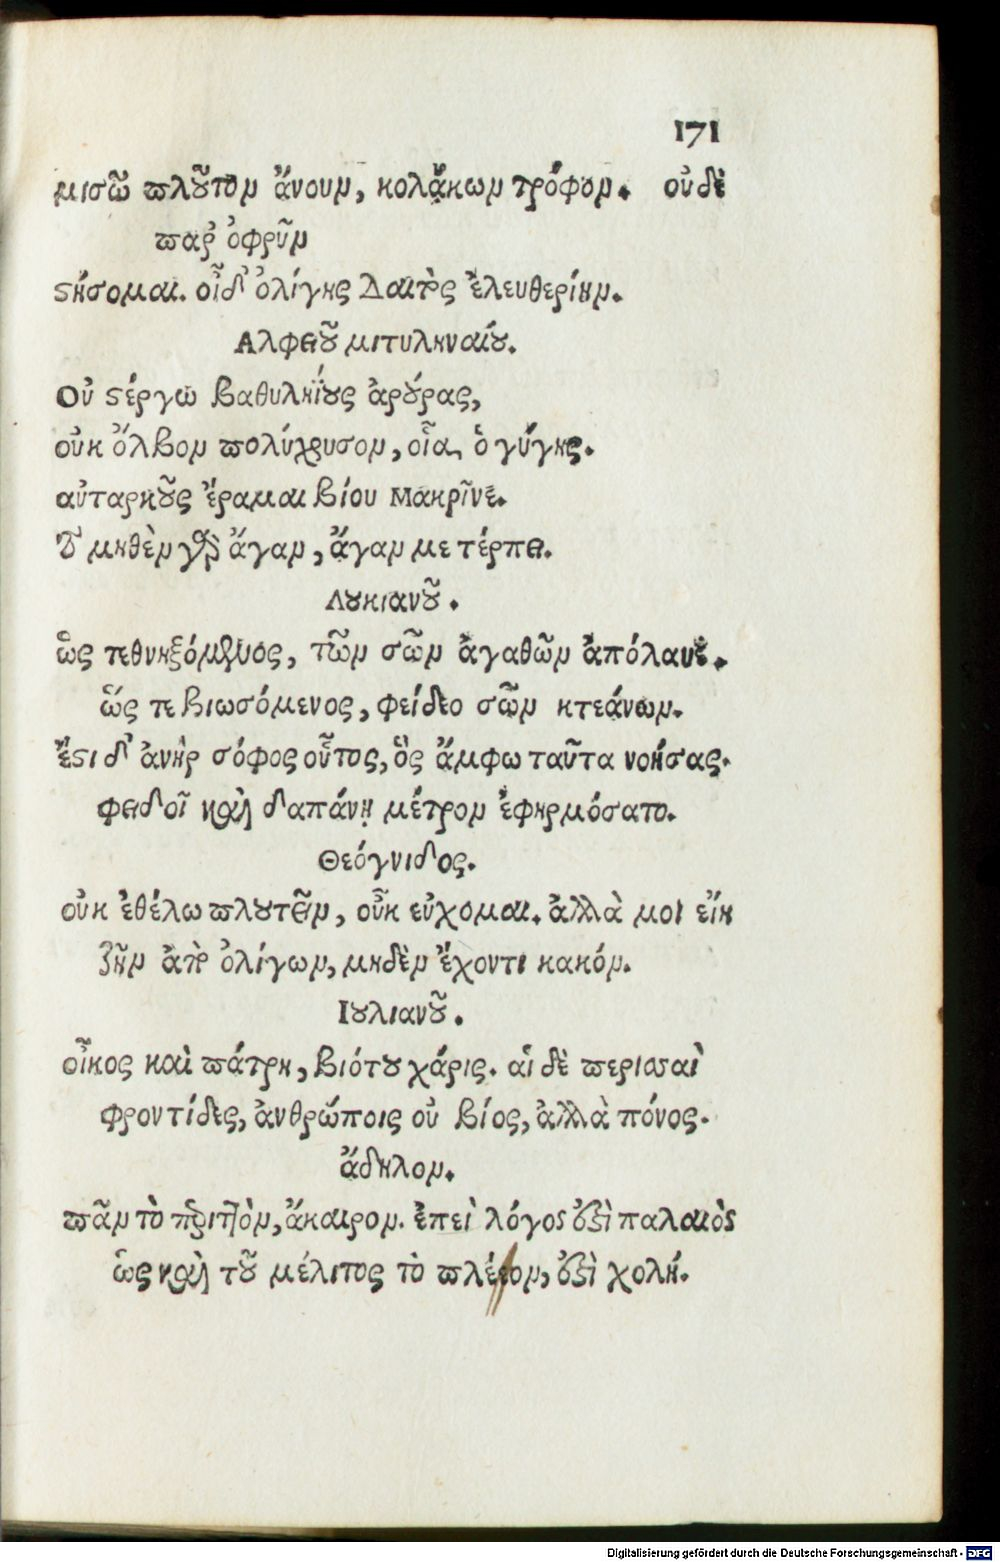 171
μισῶ πλοῦτον ἄνουν, κολάκων τρόφον. οὐδὲ
παρ' ὀφρῦν
στήσομαι. οἶδ' ὀλίγης Δαιτὸς ἐλευθερίην.
Αλφειοῦ μιτυληναίου.
Οὐ στέργω βαθυληΐους ἀρούρας,
οὐκ ὄλβον πολύχρυσον, οἷα, ὁ γύγης.
αὐταρκοῦς ἔραμαι βίου Μακρῖνε.
Τὸ μηθὲν γὰρ ἄγαν, ἄγαν με τέρπει.
Λουκιανοῦ.
ὡς τεθνηξόμενος, τῶν σῶν ἀγαθῶν ἀπόλαυε.
ὥς τε βιωσόμενος, φείδεο σῶν κτεάνων.
ἔστι δ' ἀνὴρ σόφος οὗτος, ὃς ἄμφω ταῦτα νοήσας.
φειδοῖ καὶ δαπάνῃ μέτρον ἐφηρμόσατο.
Θεόγνιδος.
οὐκ ἐθέλω πλουτεῖν, οὔκ εὐχομαι. ἀλλὰ μοι εἴη
ζῆν ἀπὸ ὀλίγων, μηδὲν ἔχοντι κακόν.
Ιουλιανοῦ.
οἶκος καὶ πάτρη, βιότου χάρις. αἱ δὲ περισσαὶ
φροντίδες, ἀνθρώποις οὐ βίος, ἀλλὰ πόνος.
ἄδηλον.
πᾶν τὸ περιττὸν, ἄκαιρον. ἐπεὶ λόγος ἐστὶ παλαιὸς
ὡς καὶ τοῦ μέλιτος τὸ πλέον, ἐστὶ χολή.
Digitalisierung gefördert durch die Deutsche Forschungsgemeinschaft - DFG